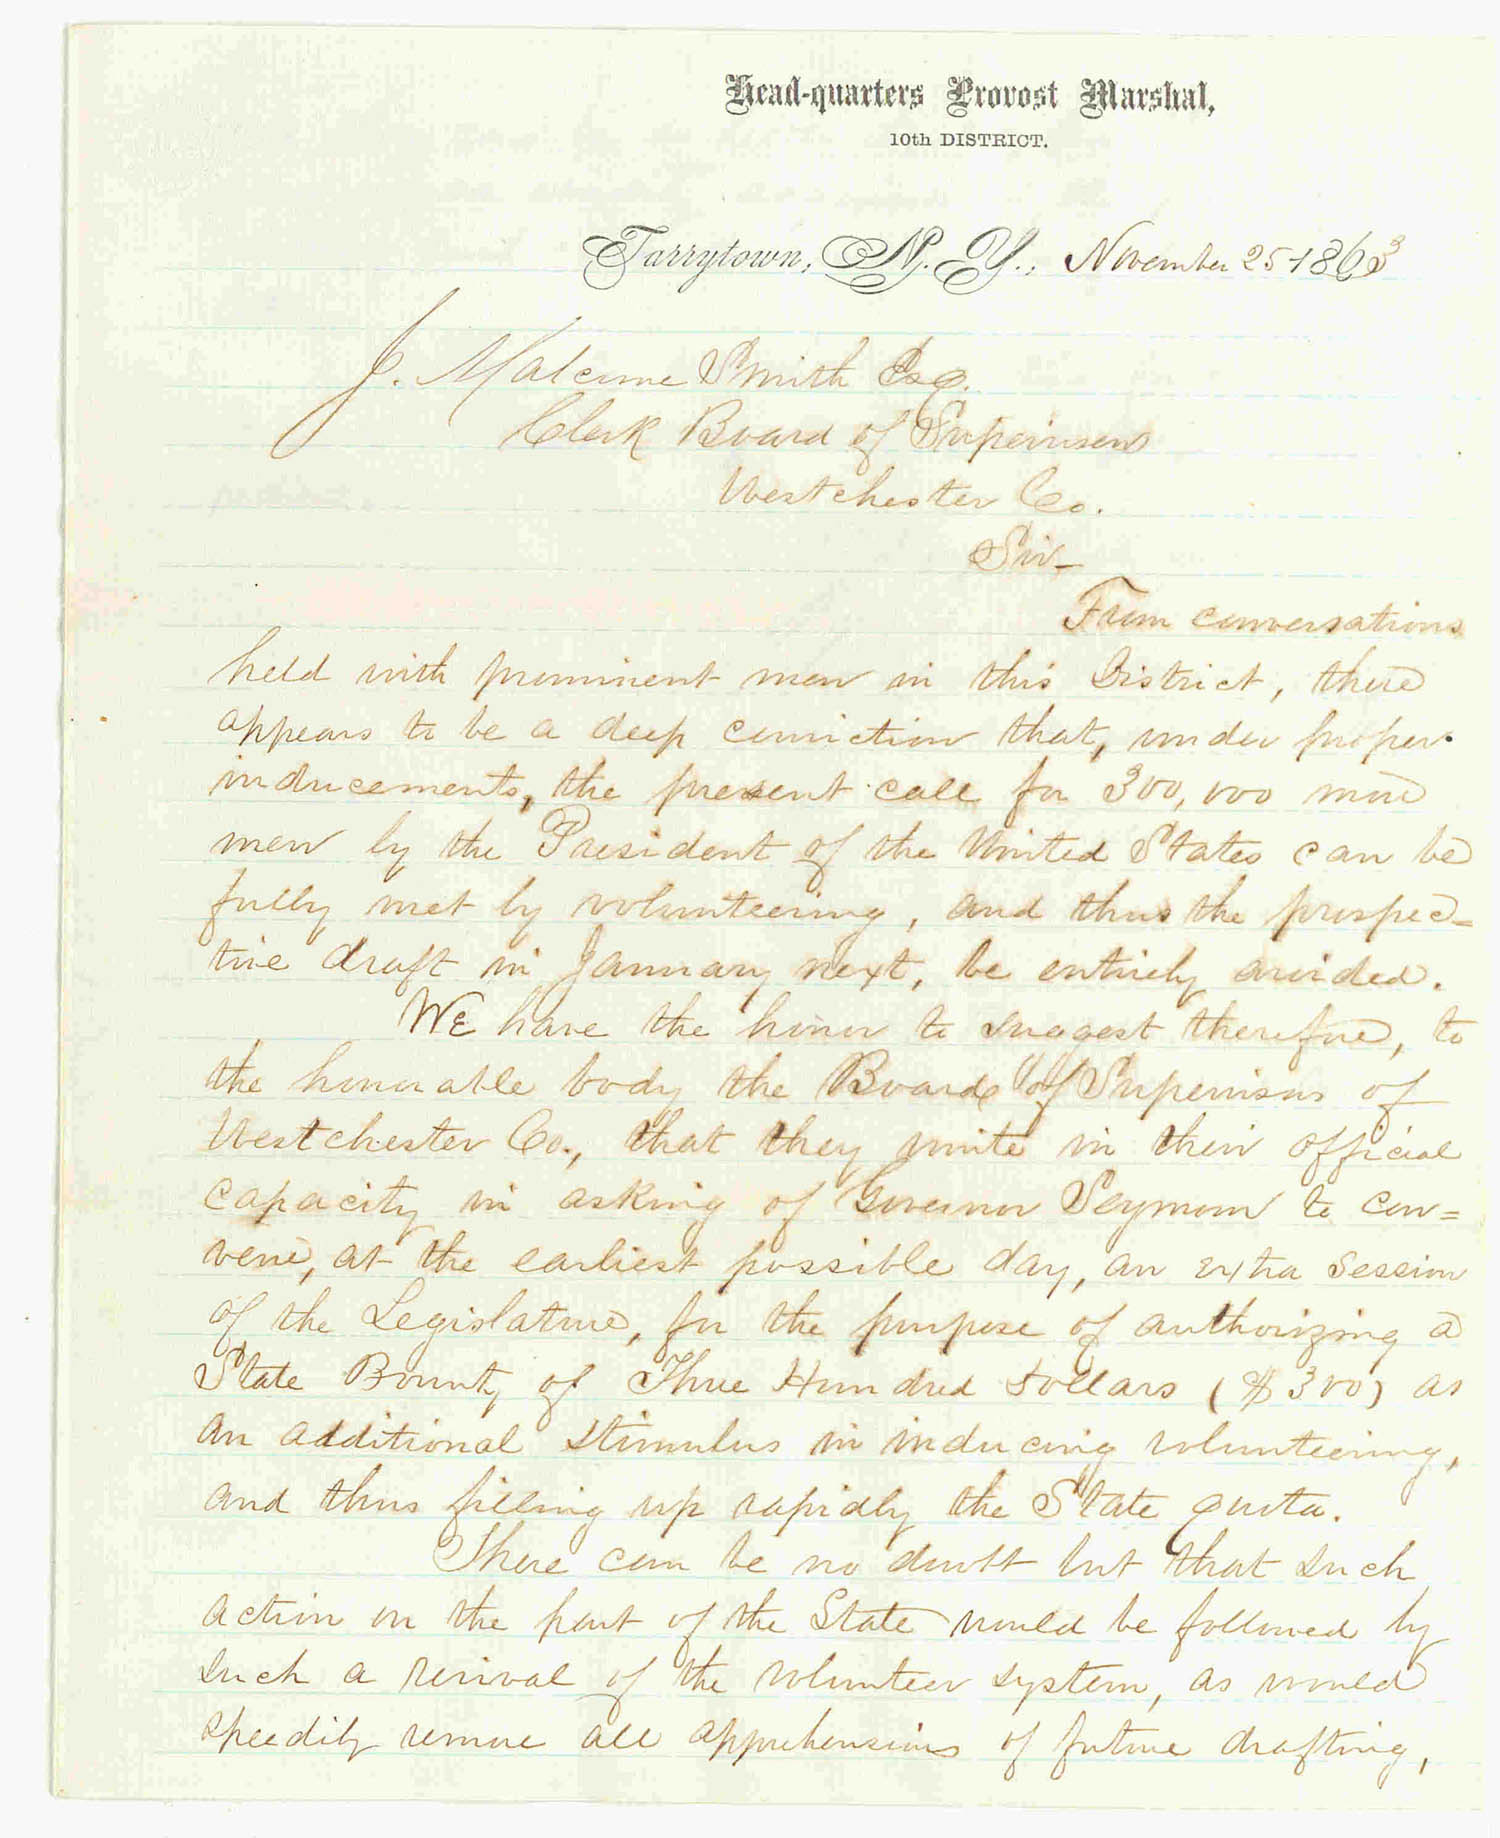 Head-quarters Provost Marshal,
10th DISTRICT.
Tarrytown, N. Y., November 25 1863
J. Malcome Smith Esq.
Clerk Board of Supervisors
Westchester Co.
Sir—
From conversations
held with prominent men in this District, there
appears to be a deep conviction that, under proper
inducements, the present call for 300,000 more
men by the President of the United States can be
fully met by volunteering, and thus the prospec-
tive draft in January next, be entirely avoided.
We have the honor to suggest therefore, to
the honorable body the Board of Supervisors of
Westchester Co., that they unite in their official
capacity in asking of Governor Seymour to con=
vene, at the earliest possible day, an extra session
of the Legislature, for the purpose of authorizing a
State Bounty of Three Hundred dollars ($300) as
an additional stimulus in inducing volunteering,
and thus filling up rapidly the State quota.
There can be no doubt but that such
action on the part of the State would be followed by
such a revival of the volunteer system, as would
speedily remove all apprehensions of future drafting,